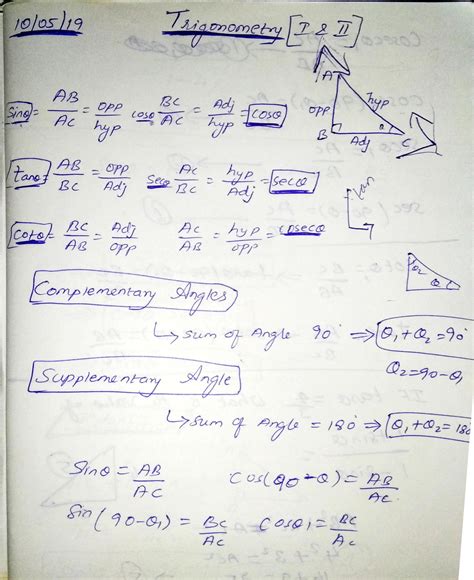 10/05/19 Trigonometry [I & II]
A
Sinθ = AB/AC = opp/hyp cosθ BC/AC = Adj/hyp = cosθ
opp hyp
B Adj θ C
tanθ = AB/BC = opp/Adj secθ AC/BC = hyp/Adj = secθ
cotθ = BC/AB = Adj/opp AC/AB = hyp/opp = cosecθ
θ2
θ1
Complementary Angles
↳ sum of Angle 90° ⇒ θ1 + θ2 = 90°
θ2 = 90-θ1
Supplementary Angle
↳ sum of Angle = 180° ⇒ θ1 + θ2 = 180
Sinθ = AB/AC Cos(90-θ) = AB/AC.
Sin(90-θ1) = BC/AC Cosθ1 = BC/AC